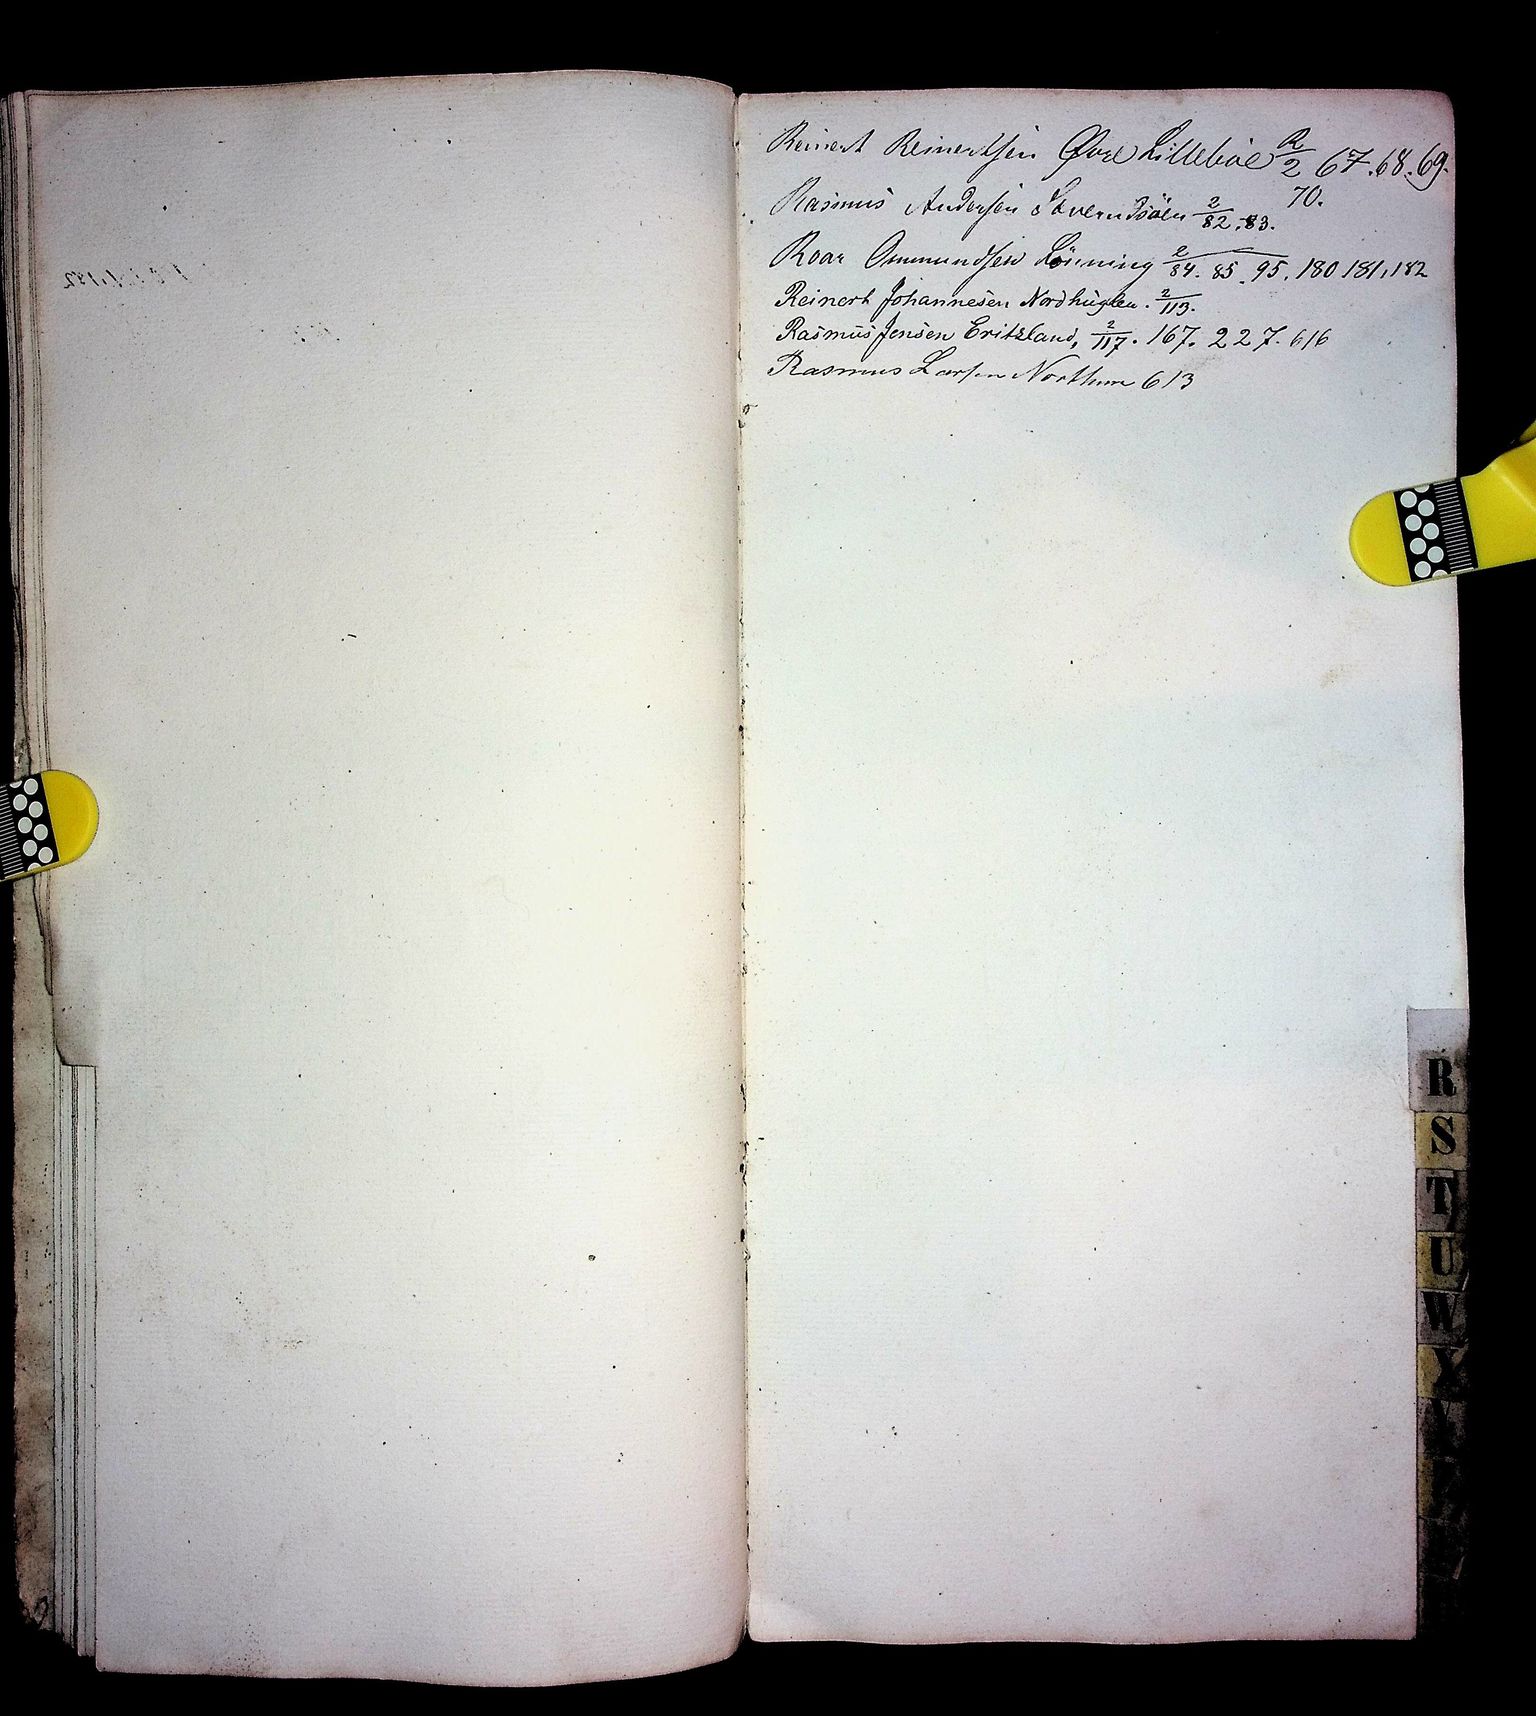 Reinert Reinertsen Øvre Lillebøe R/2 67.68.69.
70.
Rasmus Andersen 2/82.83.
Roar Ommundsen Lönning 2/84. 85. 95. 180 181, 182
Reinert Johannesen Nordhuglen. 2/113.
Rasmus Jensen Eritsland, 2/117. 167. 227. 616
Rasmus Larsen Northun 613
R
S
T
U
W
X